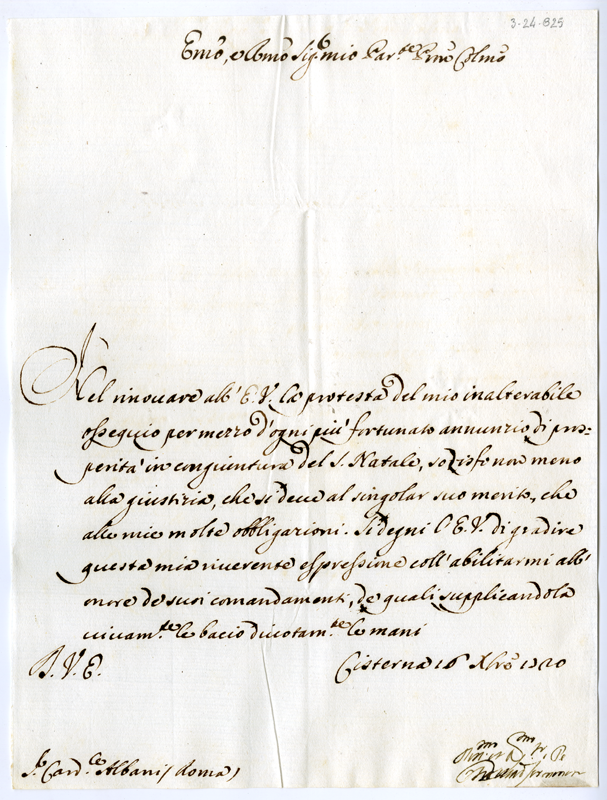 3-24-825
Emo, e Rmo Sigr mio Par.te Prne Colmo
Nel rinouare all' E. V. la protesta del mio inalterabile
osseguio per mezzo d'ogni più fortunato annunzio di pros=
perità in congiuntura del S. Natale, sodisfo non meno
alla giustizia, che si deve al singolar suo merito, che
alle mie molte obbligazioni. Si degni l'E.V. di gradire
questa mia riuerente espressione coll' abilitarmi all'
onore de suoi comandamenti, de quali supplicandola
uiuam.te le bacio diuotam.te le mani
D. V. E.
Cisterna 16 Xbre 1720
Sr Card.le Albani / Roma /